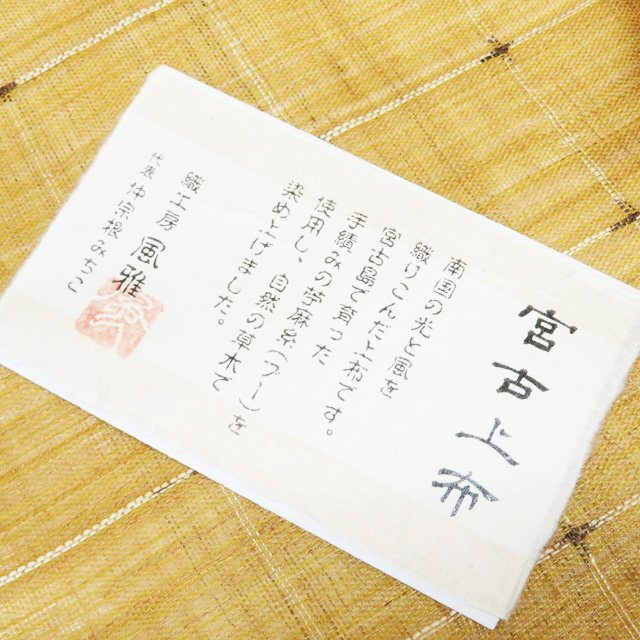 宮古上布
南国の光と風を
織りこんだ上布です。
宮古島で育った
手績みの苧麻糸(ブー)を
使用し、自然の草木で
染め上げました。
織工房 風雅
代表 仲宗根みちこ